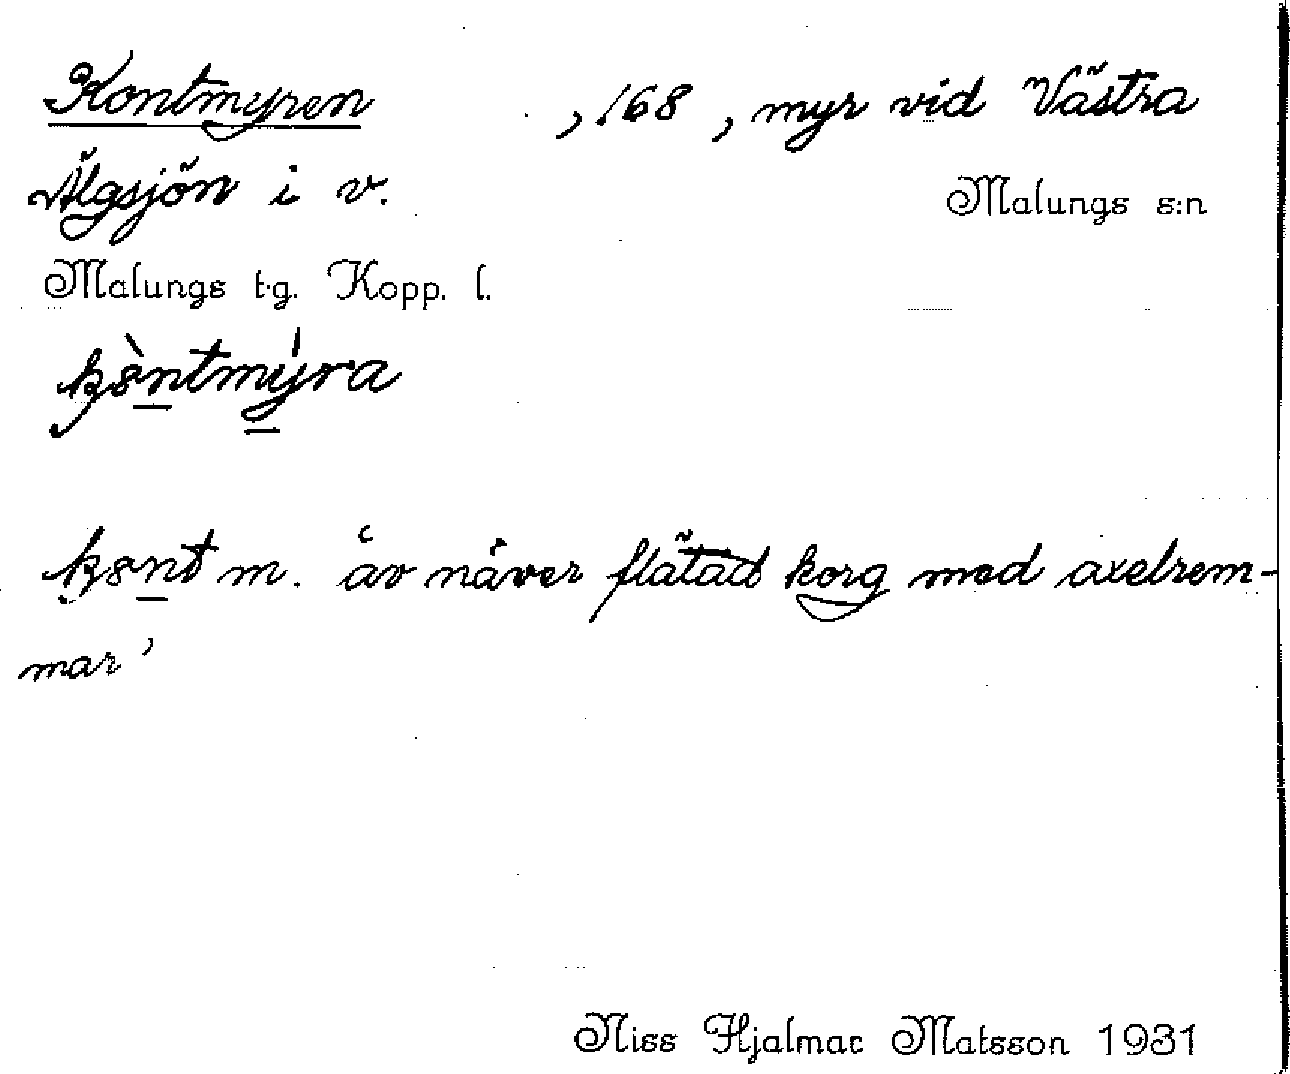 Kontmyren , 168 , myr vid Västra
Älgsjön i v. Malungs s:n
Malungs t·g. Kopp. l.
k8̀ntmýra
k8nt m. ʿav näver flätad korg med axelrem-
mar ʾ
Niss Hjalmar Matsson 1931